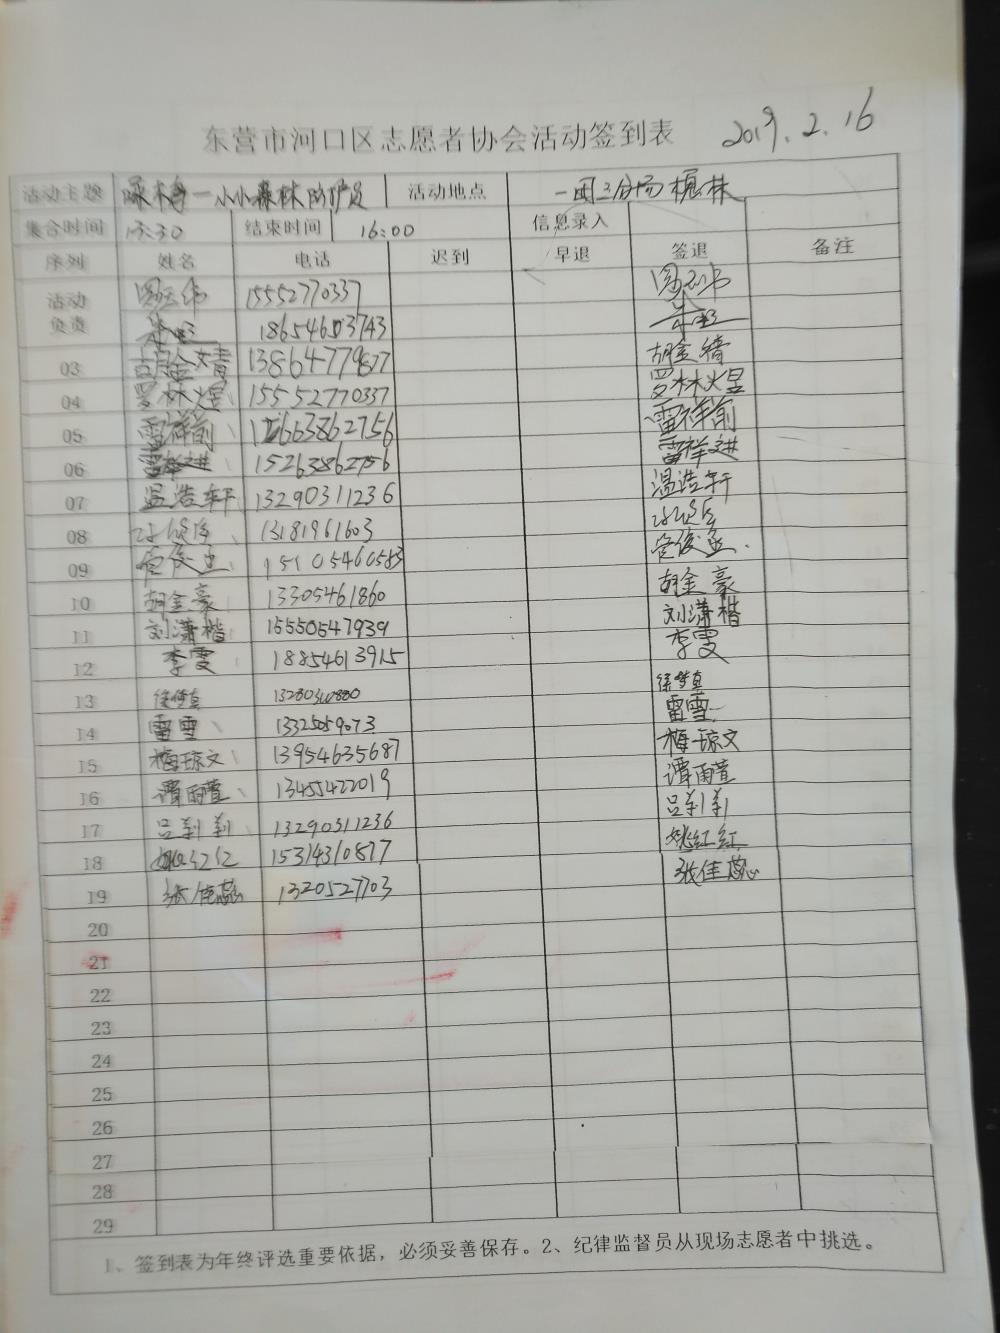 东营市河口区志愿者协会活动签到表 2019.2.16
活动主题 啄木鸟一小小森林防护员 活动地点 一田三分场槐林
集合时间 13:30 结束时间 16:00 信息录入
序列 姓名 电话 迟到 早退 签退 备注
活动负责 15552770337
18654603743
03 胡金婧 13864779877 胡金婧
04 罗林煜 15552770337 罗林煜
05 雷祥前 15663862756 雷祥前
06 雷祥进 15263862756 雷祥进
07 温浩轩 13290311236 温浩轩
08 13181961603
09 管俊 15105460583 管俊
10 胡金豪 13305461860 胡金豪
11 刘潇楷 15550547939 刘潇楷
12 李雯 18854613915 李雯
13 徐梦真 徐梦真
14 雷雪 13325059073 雷雪
15 梅琼文 13954635687 梅琼文
16 谭雨萱 13455422019 谭雨萱
17 吕莉莉 13290311236 吕莉莉
18 姚红红 15314310877 姚红红
19 张佳蕊 1320527703 张佳蕊
20
21
22
23
24
25
26
27
28
29
1、签到表为年终评选重要依据，必须妥善保存。2、纪律监督员从现场志愿者中挑选。